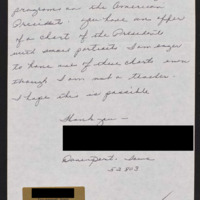 programs on the American
Presidents you have an offer
of a chart of the Presidents
with small portraits I am eager
to have one of these charts even
though I am not a teacher.
I hope this is possible
Thank you —
Davenport, Iowa
52803